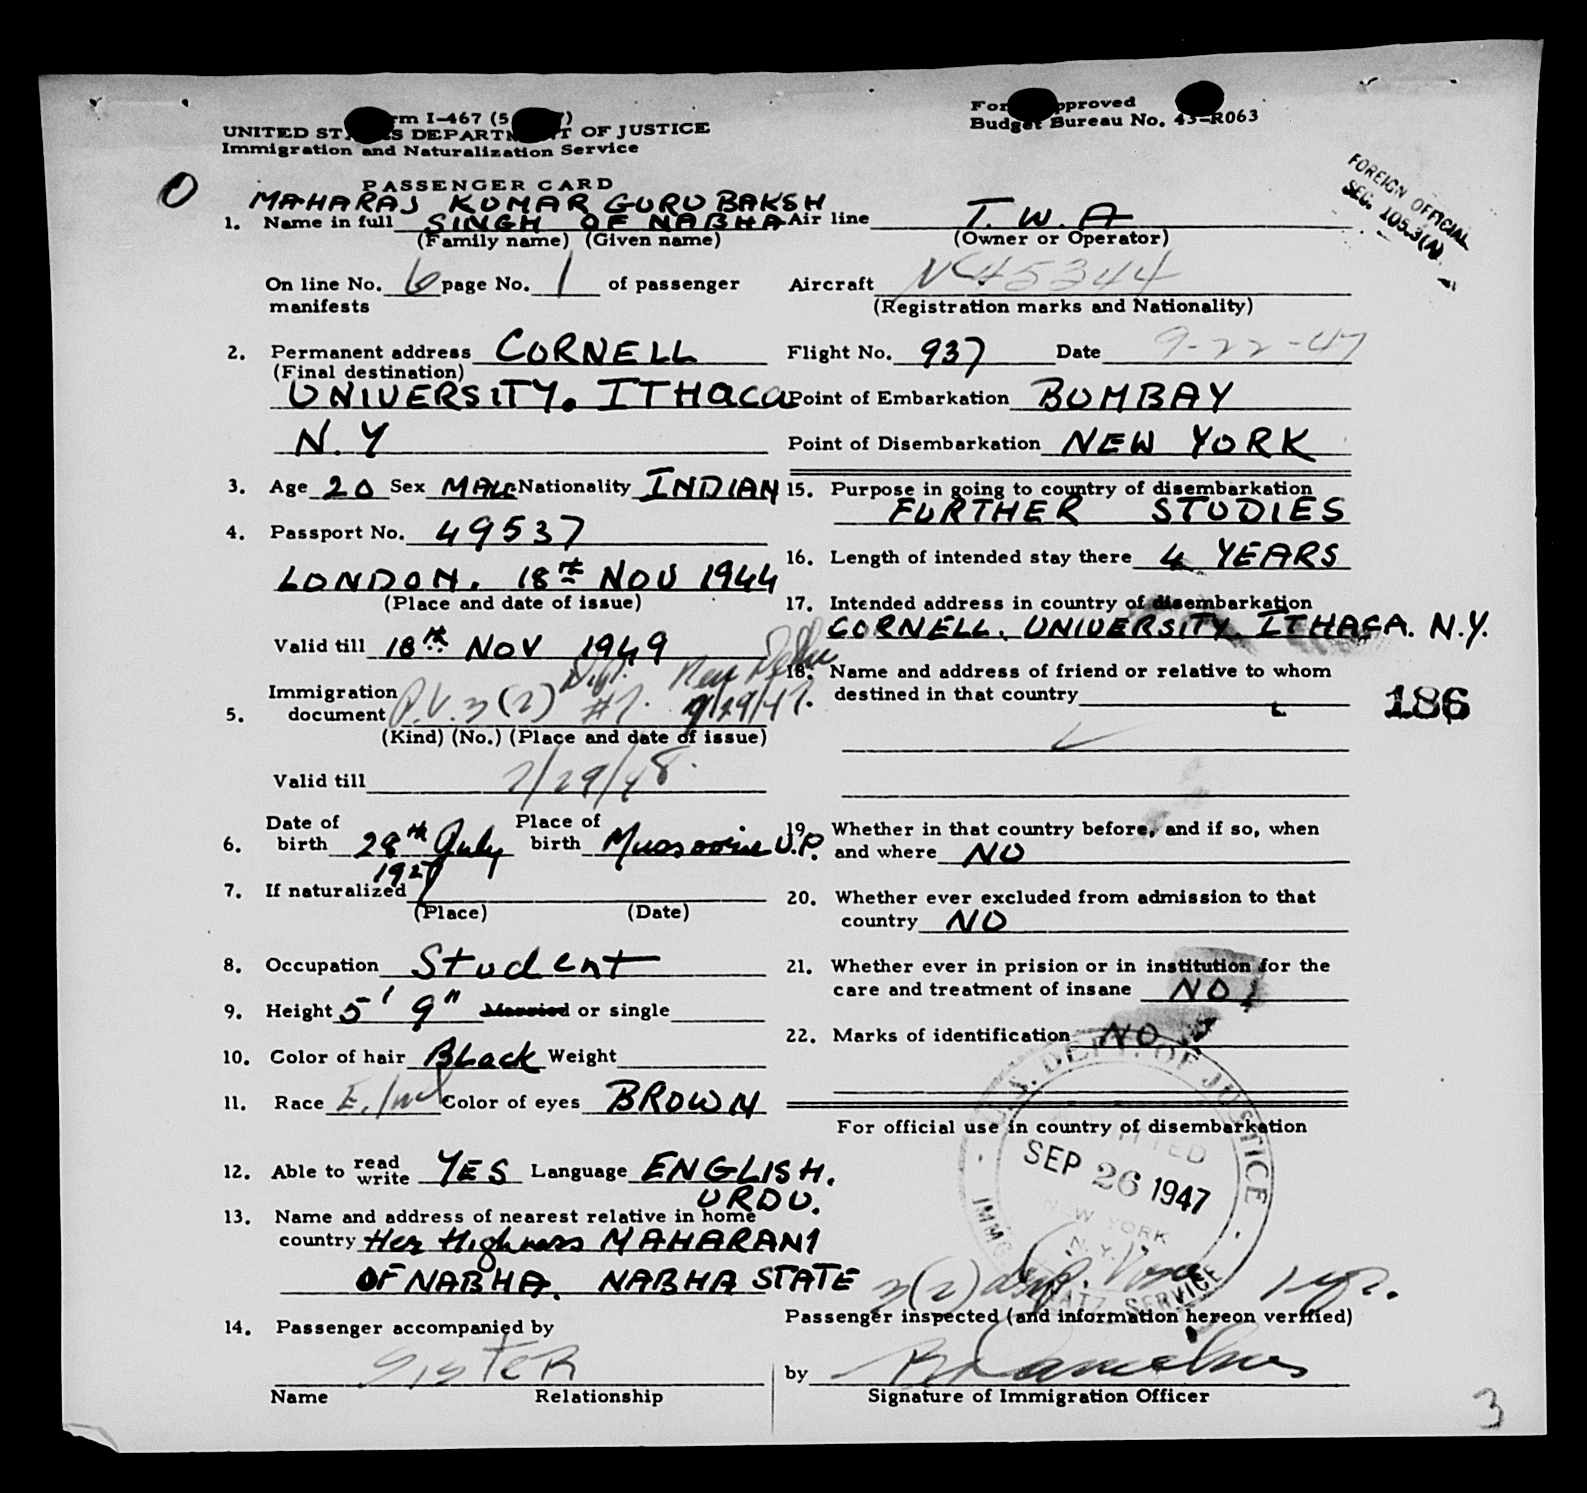 Form I-467 (5
UNITED STATES DEPARTMENT OF JUSTICE
Immigration and Naturalization Service
Form Approved
Budget Bureau No. 43-R063
FOREIGN OFFICIAL
SEC. 105.3(A)
O
PASSENGER CARD
MAHARAJ KUMAR GURU BAKSH
1. Name in full SINGH OF NABHA
(Family name) (Given name)
On line No. 6 page No. 1 of passenger
manifests
2. Permanent address CORNELL
(Final destination)
UNIVERSITY. ITHACA
N.Y
3. Age 20 Sex MALE Nationality INDIAN
4. Passport No. 49537
LONDON. 18th NOV 1944
(Place and date of issue)
Valid till 18th NOV 1949
5. Immigration
document P.V. 3(2) #7. New Delhi
(Kind) (No.) (Place and date of issue)
Valid till 7/29/48.
6. Date of
birth 28th July
1927
Place of
birth Mussoorie U.P.
7. If naturalized
(Place) (Date)
8. Occupation Student
9. Height 5' 9" Married or single
10. Color of hair Black Weight
11. Race E. Ind Color of eyes BROWN
12. Able to read
write YES Language ENGLISH.
URDU.
13. Name and address of nearest relative in home
country Her Highness MAHARANI
OF NABHA. NABHA STATE
14. Passenger accompanied by
SISTER
Name Relationship
Air line T.W.A
(Owner or Operator)
Aircraft NC45344
(Registration marks and Nationality)
Flight No. 937 Date 9-22-47
Point of Embarkation BOMBAY
Point of Disembarkation NEW YORK
15. Purpose in going to country of disembarkation
FURTHER STUDIES
16. Length of intended stay there 4 YEARS
17. Intended address in country of disembarkation
CORNELL. UNIVERSITY. ITHACA. N.Y.
18. Name and address of friend or relative to whom
destined in that country
186
19. Whether in that country before, and if so, when
and where NO
20. Whether ever excluded from admission to that
country NO
21. Whether ever in prision or in institution for the
care and treatment of insane NO
22. Marks of identification NO
For official use in country of disembarkation
U.S. DEPT. OF JUSTICE
ADMITTED
SEP 26 1947
NEW YORK
N.Y.
IMMIG. & NATZ. SERVICE
3(2)
1 yr.
Passenger inspected (and information hereon verified)
by
Signature of Immigration Officer
3